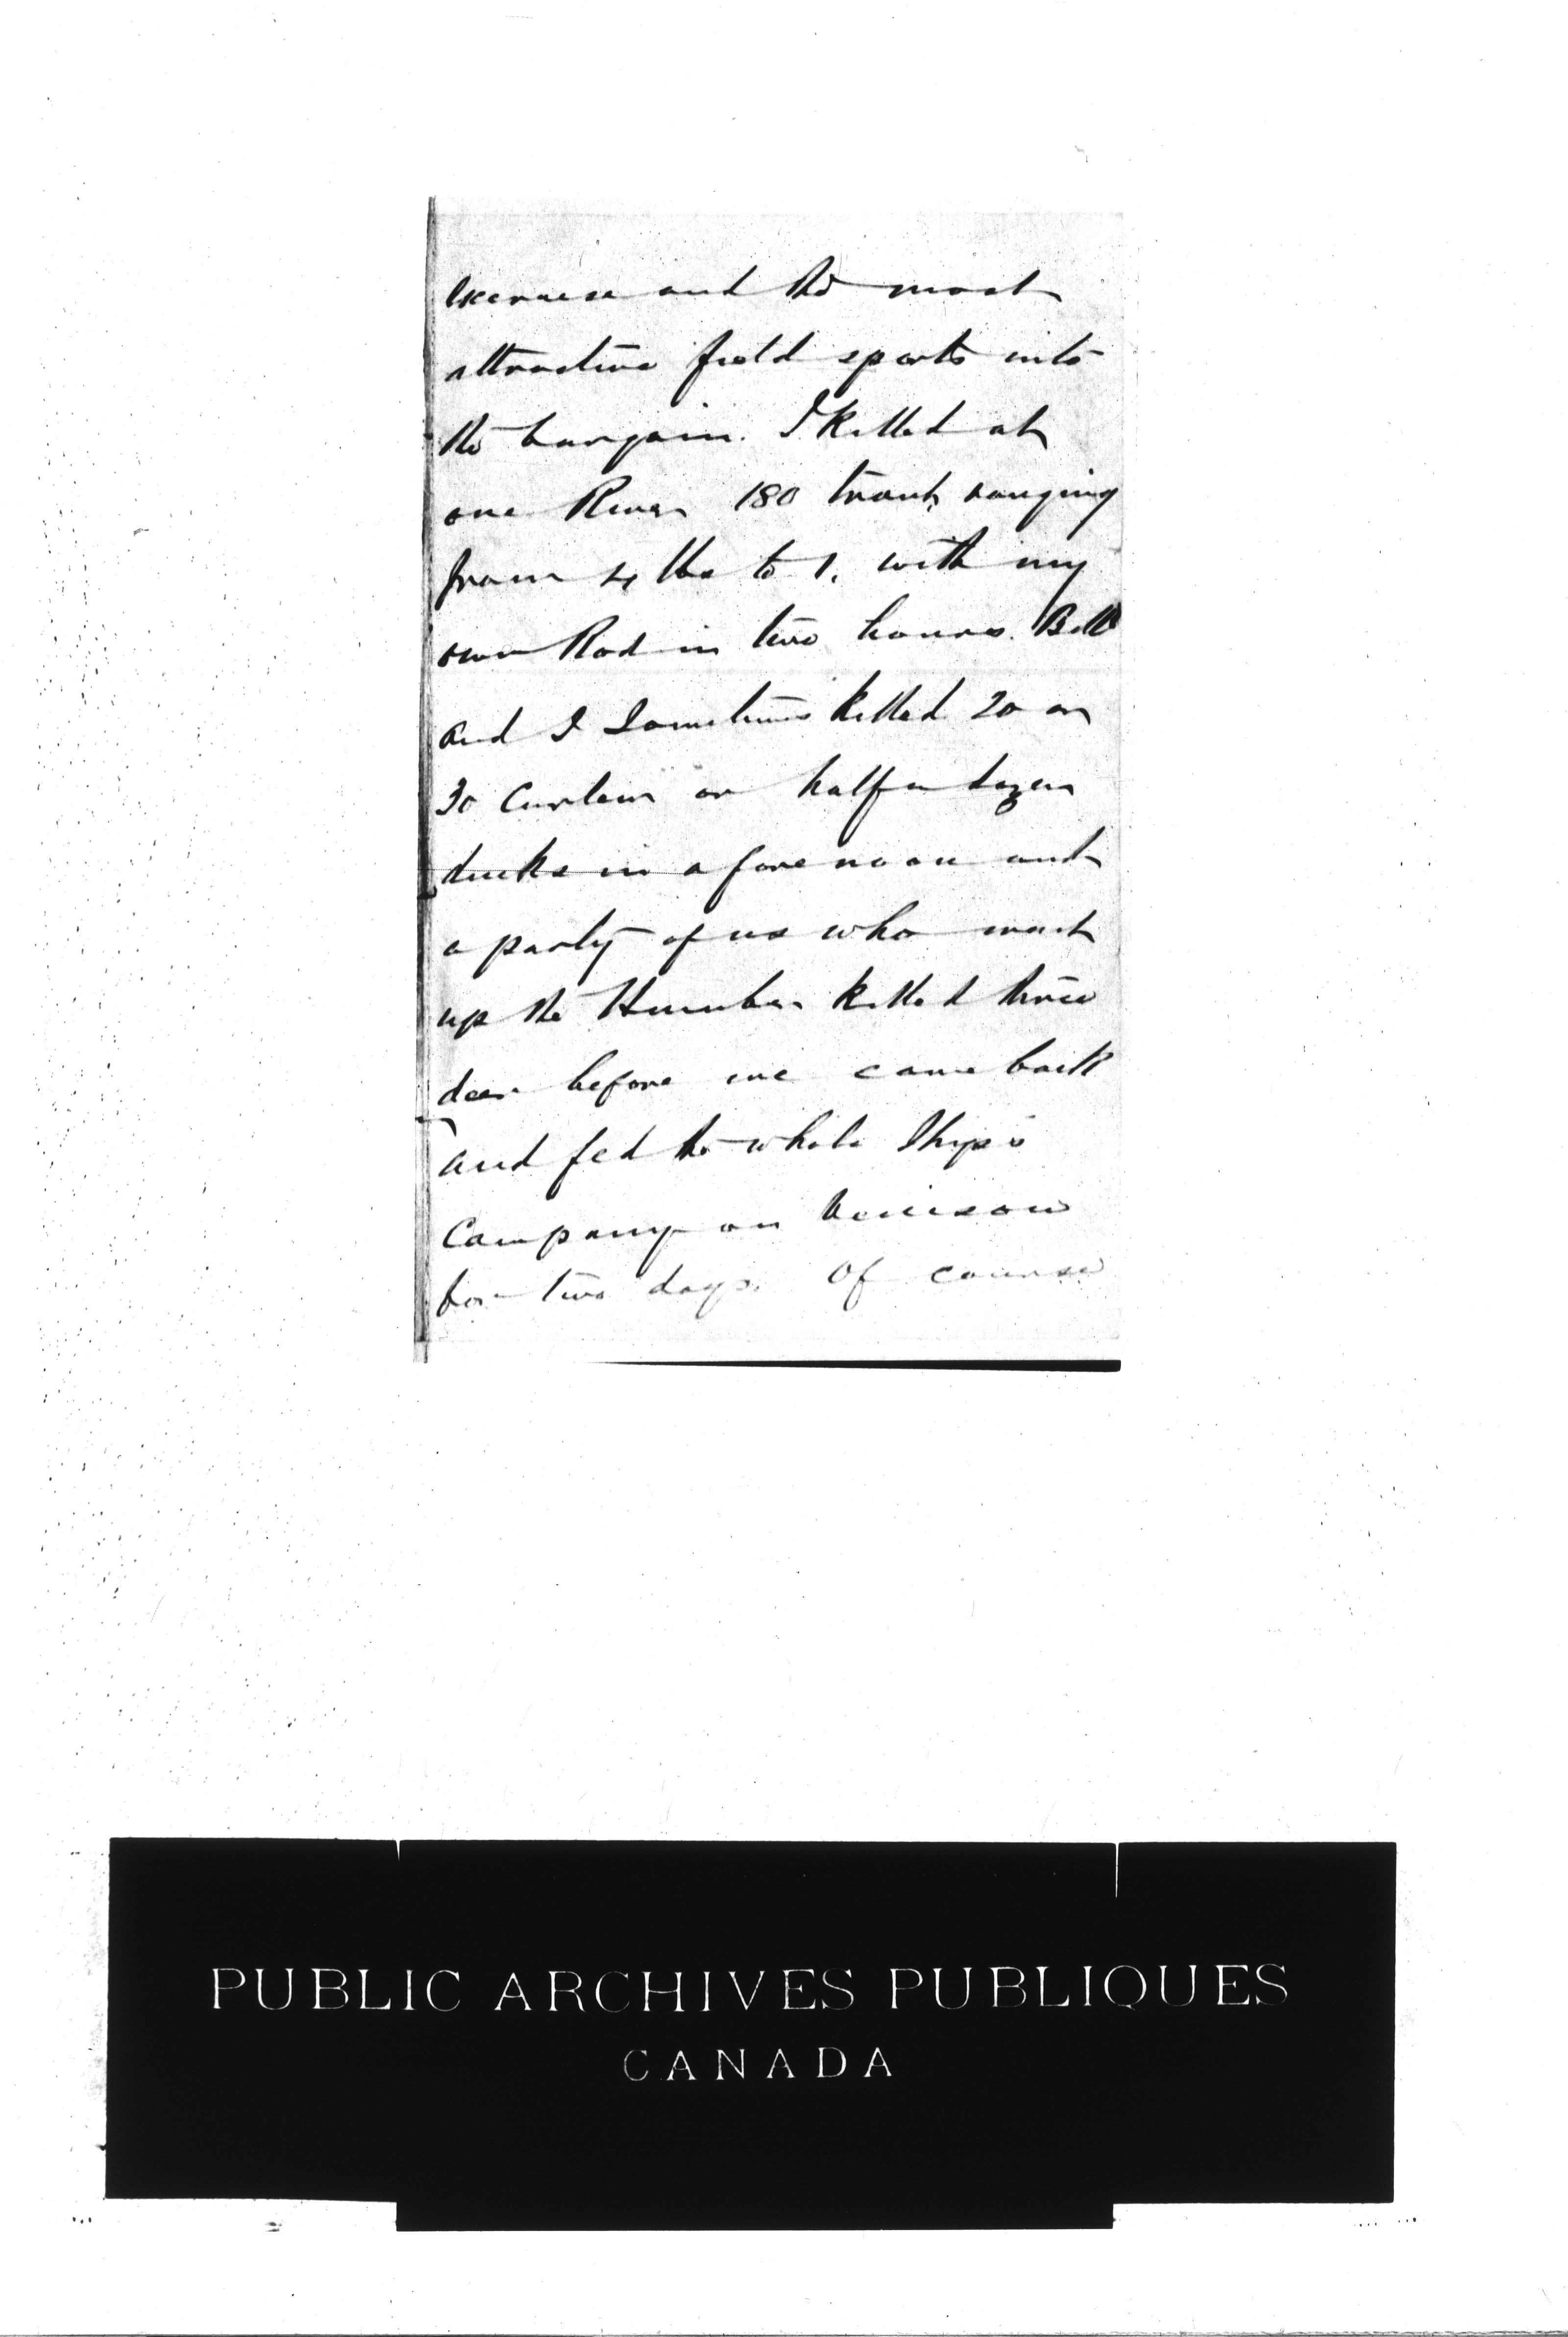 exercise and the most
attractive field sports into
the bargain. I killed at
one River 180 trout, ranging
from 4 lbs to 1. with my
own Rod in two hours. Bill
and I Sometimes killed 20 or
30 Curlew or half a dozen
ducks in a forenoon and
a party of us who went
up the Humber killed three
deer before we came back
and fed the whole Ship's
Company on Venison
for two days. Of course
PUBLIC ARCHIVES PUBLIQUES
CANADA